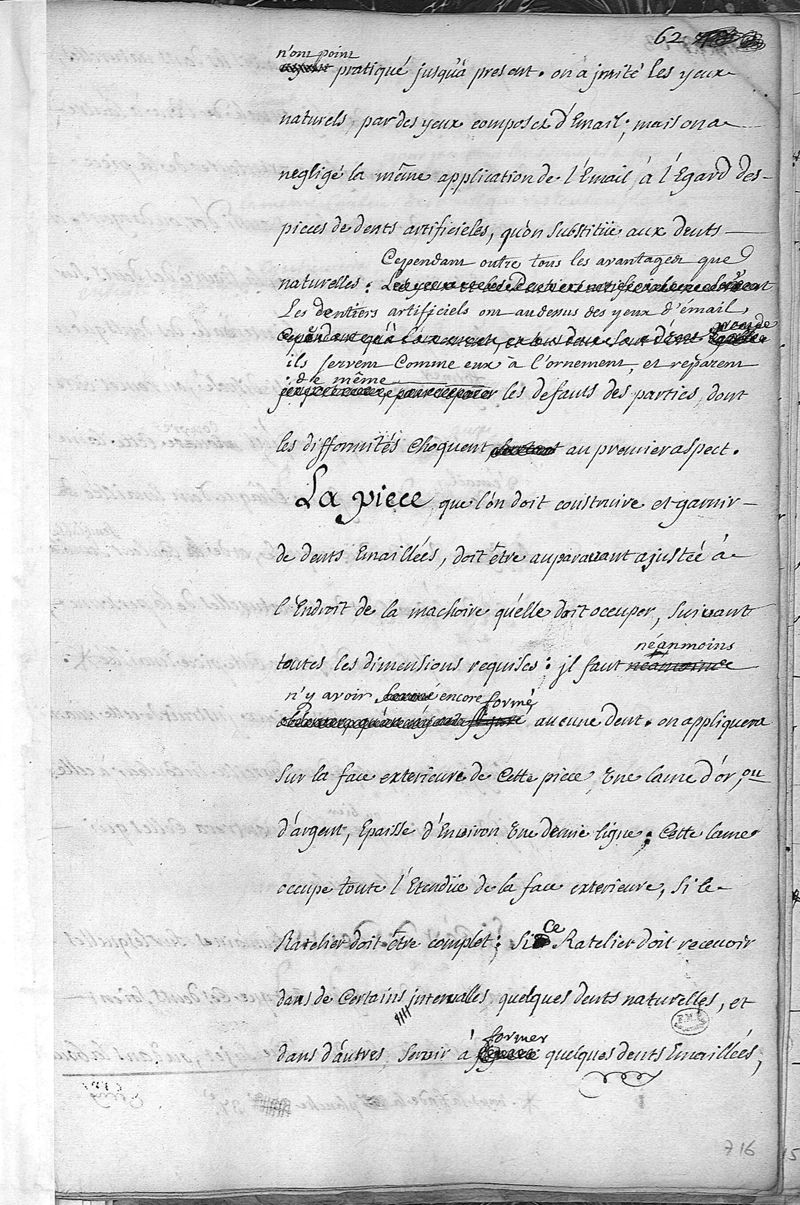 62
n'ont point
pratiqué jusqu'à present. on à jmité Les yeux
naturels, par des yeux composez d'Email; mais on a
negligé la même application de l'Email, à l'Egard des
pieces de dents artificieles, qu'on Substitüe aux dents
Cependant outre tous les avantages que
naturelles:
Les dentiers artificiels ont au dessus des yeux d'émail,
ils servent Comme eux à l'ornement, et reparent
de même
les defauts des parties, dont
les difformités choquent au premier aspect.
La piece que l'on doit construire et garnir
de dents Emaillées, doit être auparavant ajustée à
l'Endroit de la machoire qu'elle doit occuper, Suivant
toutes les dimensions requises: jl faut néanmoins
n'y avoir encore formé
aucune dent. on appliquera
Sur la face exterieure de Cette piece, Une lame d'or, ou
d'argent, Epaisse d'Environ Une demie ligne; Cette lame
occupe toute l'Etendüe de la face exterieure, Si le
Ratelier doit être complet; Si Ce Ratelier doit recevoir
dans de Certains jntervalles quelques dents naturelles, et
dans d'autres, Servir à former quelques dents Emaillées,
716